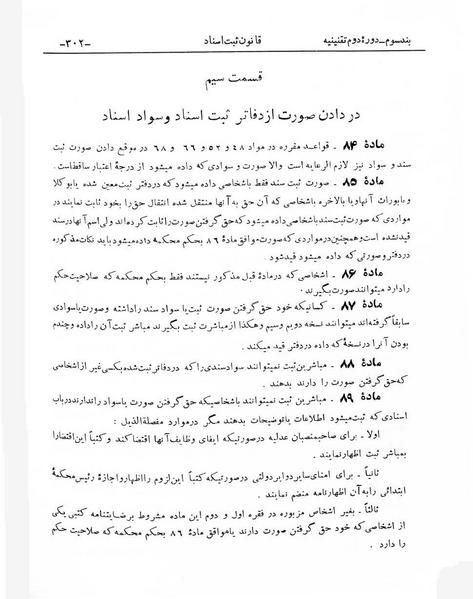 بند سوم ـ دورهٔ دوم تقنینیه قانون ثبت اسناد -۳۰۲-
قسمت سیم
در دادن صورت از دفاتر ثبت اسناد و سواد اسناد
مادهٔ ۸۴ ـ قواعد مقرره در مواد ۴۸ و ۵۲ و ۶۶ و ۶۸ در موقع دادن صورت ثبت
سند و سواد نیز لازم الرعایه است والا صورت و سوادی که داده میشود از درجهٔ اعتبار ساقط است.
مادهٔ ۸۵ ـ صورت ثبت سند فقط باشخاصی داده میشود که در دفتر ثبت معین شده یا بوکلا
و یا بوراث آنها و یا بالاخره باشخاصی که آن حق به آنها منتقل شده انتقال حق را بخود ثابت نمایند در
مواردی که صورت ثبت سند باشخاصی داده میشود که حق گرفتن صورت را ثابت کرده‌اند ولی اسم آنها در سند
قید نشده است و همچنین در مواردی که صورت موافق مادهٔ ۸۶ بحکم محکمه داده میشود باید نکات مذکوره
در دفتر و صورتی که داده میشود قید شود.
مادهٔ ۸۶ ـ اشخاصی که در مادهٔ قبل مذکور نیستند فقط بحکم محکمه که صلاحیت حکم
را دارد میتوانند صورت بگیرند.
مادهٔ ۸۷ ـ کسانیکه خود حق گرفتن صورت ثبت یا سواد سند را داشته و صورت یا سوادی
سابقاً گرفته‌اند میتوانند نسخه دویم و سیم و هکذا از مباشرت ثبت بگیرند مباشر ثبت آن را داده و چندم
بودن آنرا در نسخهٔ که داده در دفتر قید میکند.
مادهٔ ۸۸ ـ مباشرین ثبت نمیتوانند سواد سندی را که در دفاتر ثبت شده بکسی غیر از اشخاصی
که حق گرفتن صورت را دارند بدهند.
مادهٔ ۸۹ ـ مباشرین ثبت نمیتوانند باشخاصیکه حق گرفتن صورت یا سواد را ندارند در باب
اسنادی که ثبت میشود اطلاعات یا توضیحات بدهند مگر در موارد مفصلة الذیل:
اولا ـ برای صاحبمنصبان عدلیه در صورتیکه ایفای وظایف آنها اقتضا کند و کتباً این اقتضا را
بمباشر ثبت اظهار نمایند.
ثانیاً ـ برای امنای سایر دوایر دولتی در صورتیکه کتباً این لزوم را اظهار و اجازهٔ رئیس محکمهٔ
ابتدائی را به آن اظهارنامه منضم نمایند.
ثالثاً ـ بغیر اشخاص مزبوره در فقره اول و دوم این ماده مشروط برضایتنامه کتبی یکی
از اشخاصی که خود حق گرفتن صورت دارند یا موافق مادهٔ ۸۶ بحکم محکمه که صلاحیت حکم
را دارد.